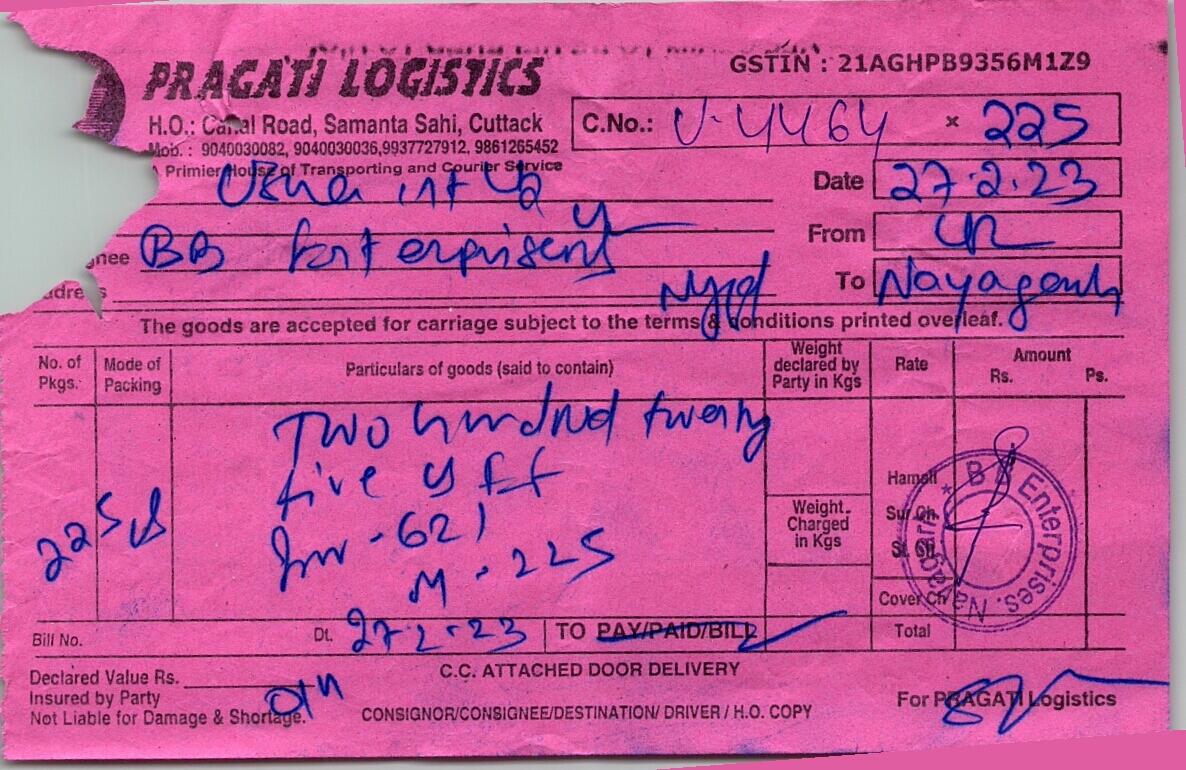 PRAGATI LOGISTICS
GSTIN : 21AGHPB9356M1Z9
H.O.: Canal Road, Samanta Sahi, Cuttack
Mob. : 9040030082, 9040030036,9937727912, 9861265452
A Primier House of Transporting and Courier Service
C.No.: U-4464 × 225
Date 27.2.23
Usha int
From
gnee BB
To Nayagarh
adress
The goods are accepted for carriage subject to the terms & conditions printed overleaf.
No. of Pkgs. Mode of Packing Particulars of goods (said to contain) Weight declared by Party in Kgs Rate Amount Rs. Ps.
Two hundred twenty
five
225
Inv - 621
M - 225
Hamali
Weight. Charged in Kgs
Sur Ch.
St. Ch.
Cover Ch
B B Enterprises. Nayagarh *
Bill No. Dt. 27-2-23 TO PAY/PAID/BILL Total
Declared Value Rs. C.C. ATTACHED DOOR DELIVERY
Insured by Party
Not Liable for Damage & Shortage.
CONSIGNOR/CONSIGNEE/DESTINATION/ DRIVER / H.O. COPY
For PRAGATI Logistics